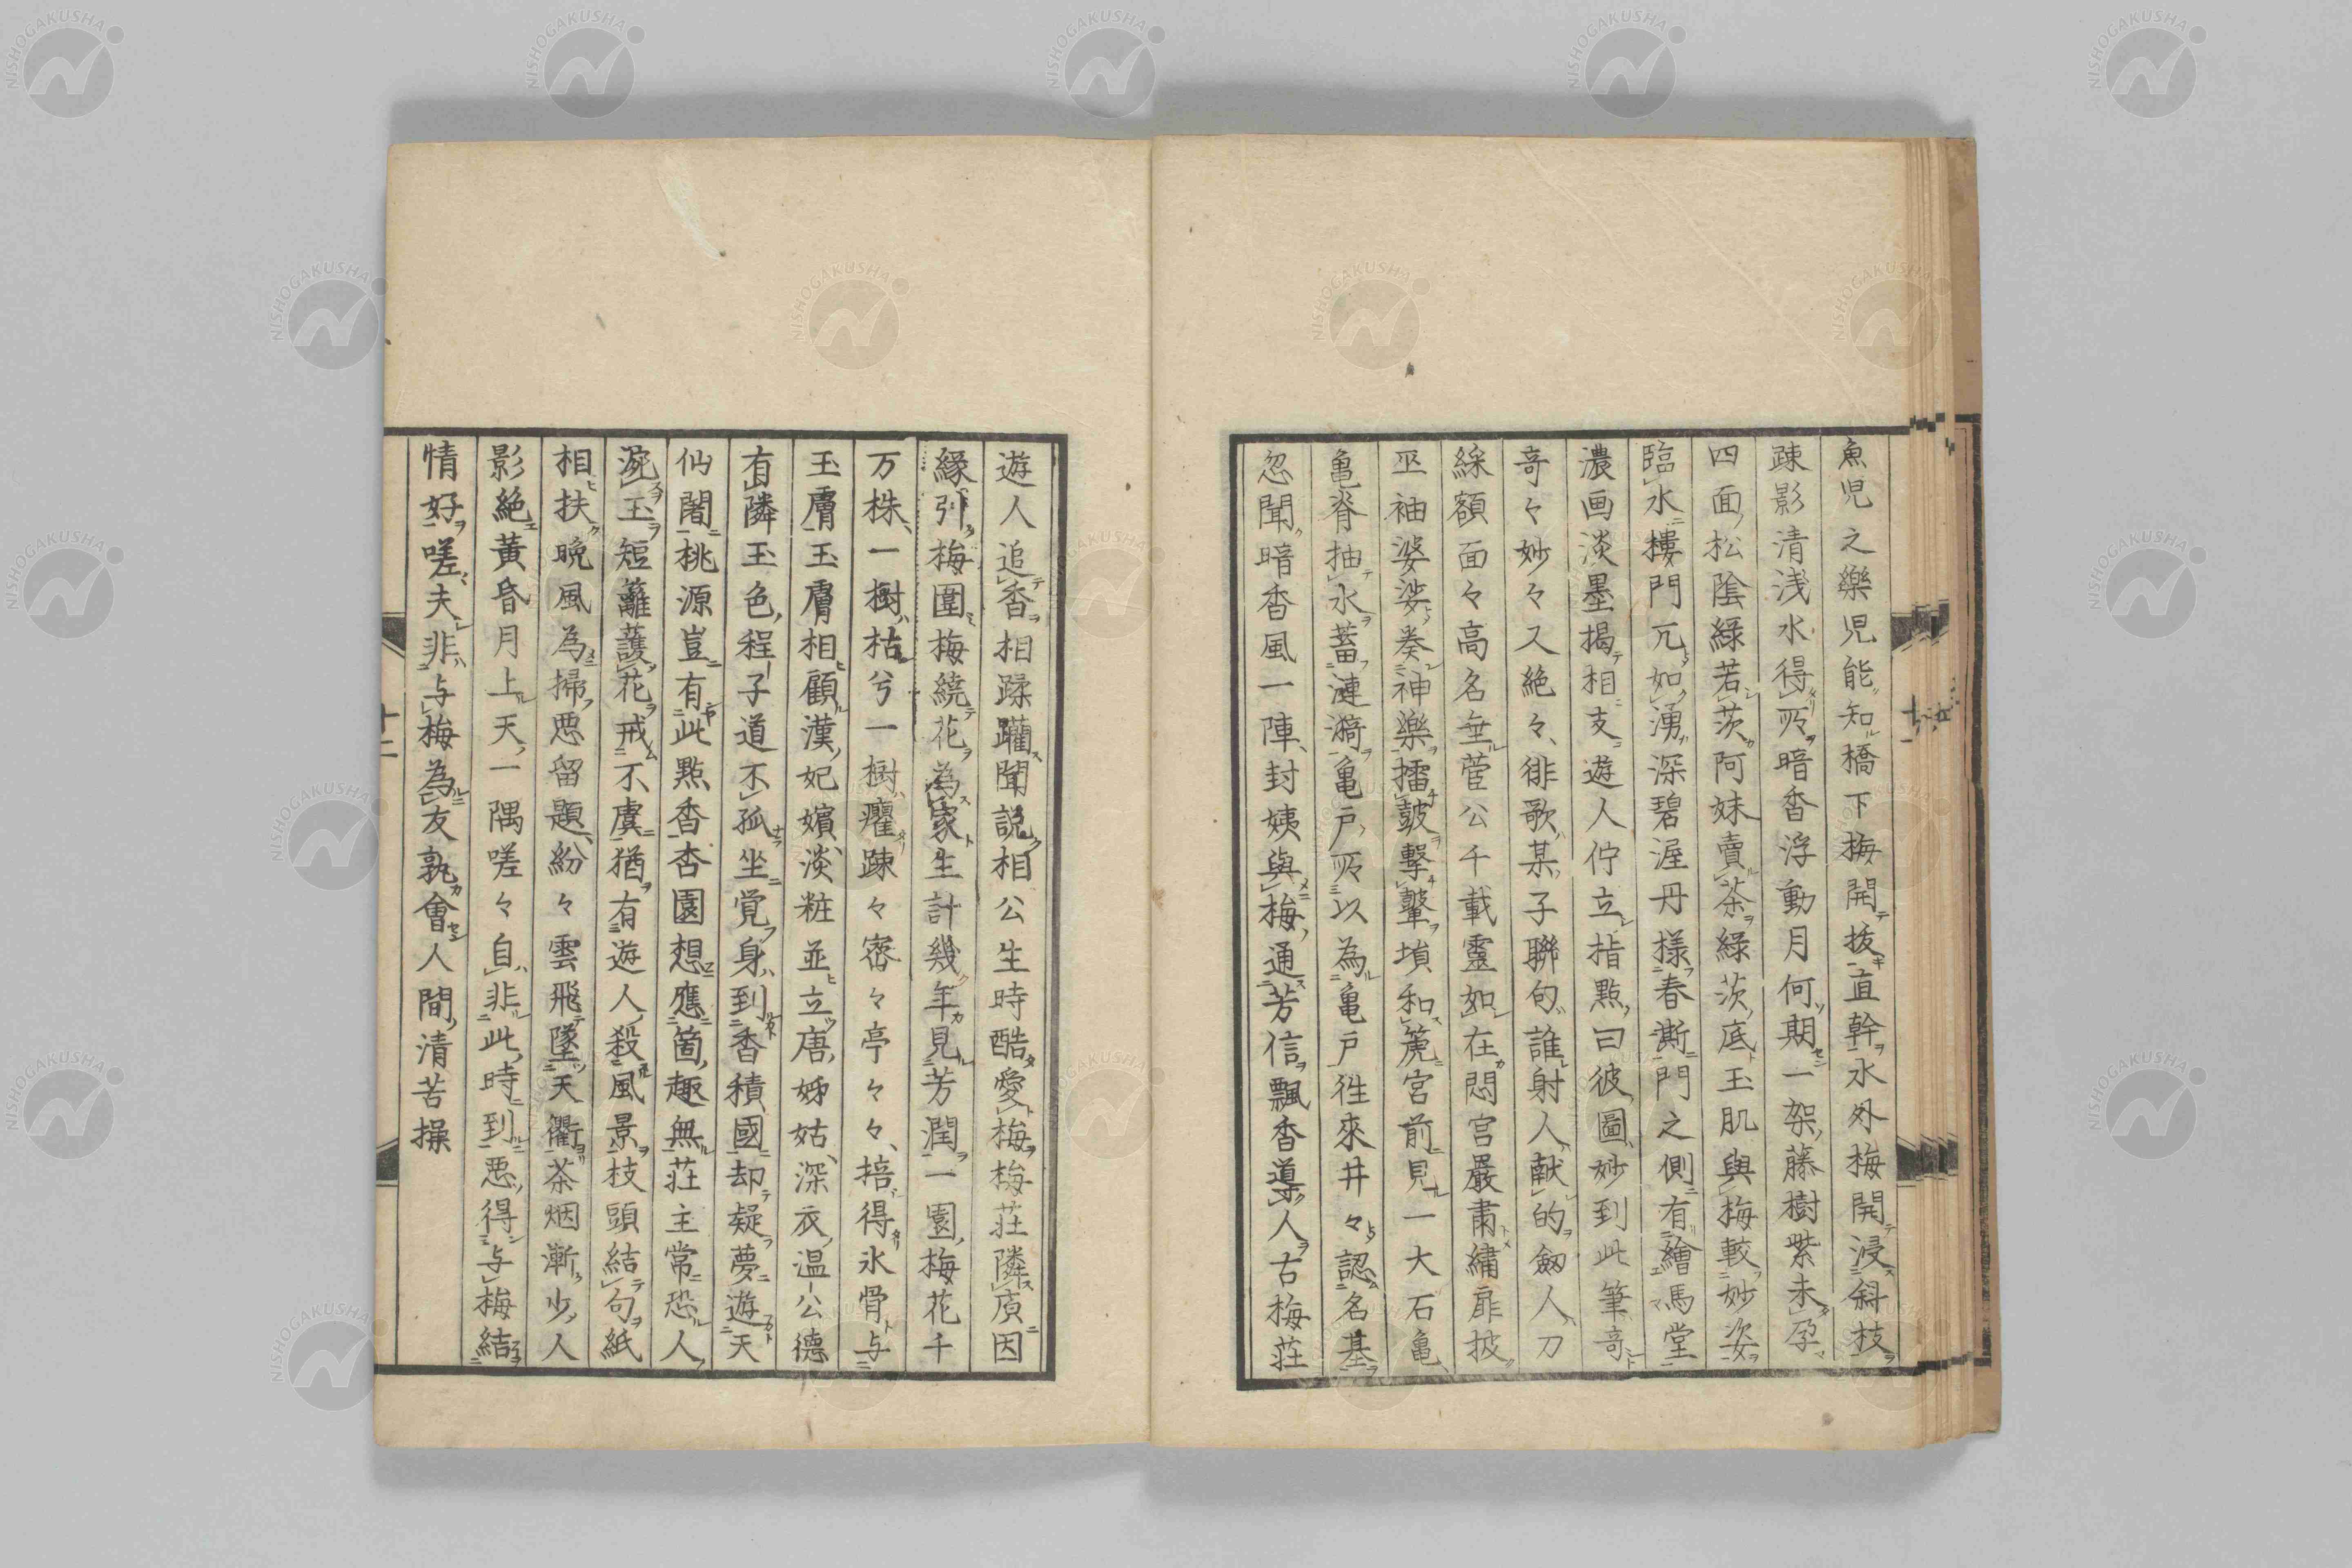 魚児之樂児能知橋下梅開抜直幹水外梅開浸斜枝
疎影清浅水得所暗香浮動月何期一架藤樹紫未孕
四面松陰緑若茨阿妹賣茶緑茨底玉肌與梅較妙姿
臨水樓門兀如湧深碧渥丹様春澌門之側有繪馬堂
濃画淡墨掲相支遊人佇立指點曰彼圖妙到此筆奇
奇々妙々又絶々徘歌某子聯句誰射人献的劔人刀
綵額面々高名垂菅公千載靈如在閟宮嚴肅繡扉披
巫袖婆娑奏神樂擂皷撃鼙塤和篪宮前見一大石亀
亀脊抽水蓄漣漪亀戸所以為亀戸徃來井々認名基
忽聞暗香風一陣封姨與梅通芳信飄香導人古梅荘
十一
遊人追香相蹂躪聞説相公生時酷愛梅梅荘隣廎因
緣引梅圍梅繞花為家生計幾年見芳潤一園梅花千
万株一樹枯兮一樹癯疎々密々亭々々培得氷骨与
玉膚玉膚相顧漢妃嬪淡粧並立唐姊姑深衣温公德
有隣玉色程子道不孤坐覚身到香積國却疑夢遊天
仙闍桃源豈有此點香杏園想應箇趣無荘主常恐人
涴玉短籬護花戒不虞猶有遊人殺風景枝頭結句紙
相扶晩風為掃悪留題紛々雲飛墜天衢茶烟漸少人
影絶黄昏月上天一隅嗟々自非此時到悪得与梅結
情好嗟夫非与梅為友孰會人間清苦操
十二
NISHOGAKUSHA